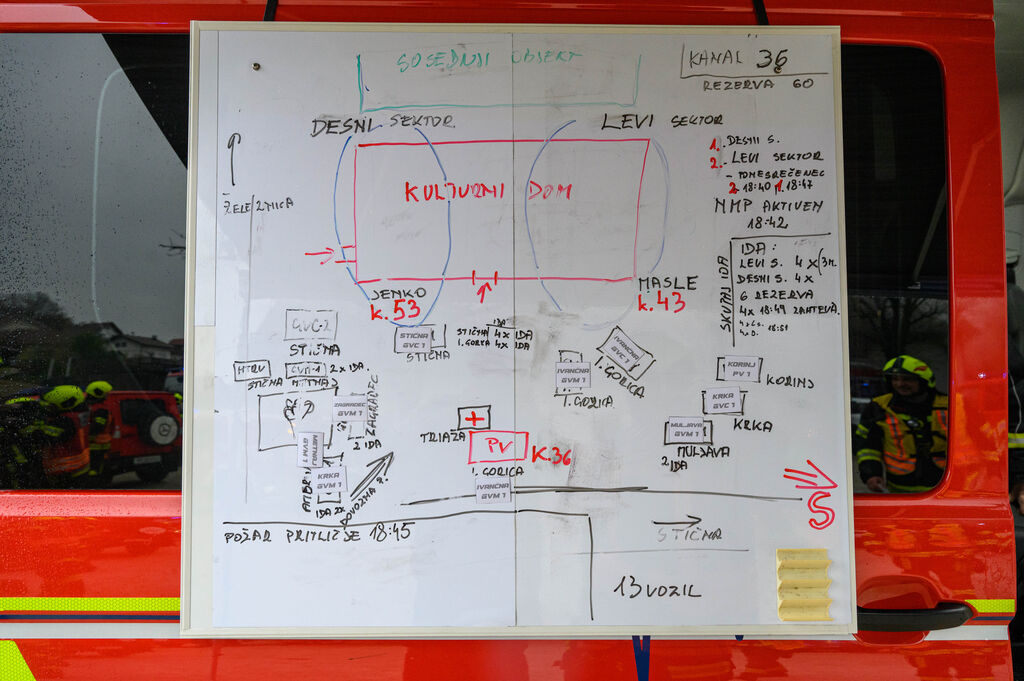 SOSEDNJI OBJEKT
KANAL 36
REZERVA 60
DESNI SEKTOR
LEVI SEKTOR
1. DESNI S.
2. LEVI SEKTOR
- PONESREČENEC
2. 18:40 1. 18:47
NMP AKTIVEN
18:42
ŽELEZNICA
KULTURNI DOM
SKUPAJ IDA
IDA:
LEVI S. 4X
DESNI S. 4X
6 REZERVA
4X 18:49 ZAHTEVA
JENKO
K.53
MASLE
K.43
GVC-2
STIČNA
STIČNA
GVC 1
STIČNA
IDA
STIČNA 4X IDA
I. GORICA 4X IDA
IVANČNA
GVC 1
I. GORICA
IVANČNA
GVM 1
I. GORICA
KORINJ
PV 1
KORINJ
KRKA
GVC 1
KRKA
MULJAVA
GVM 1
MULJAVA
2 IDA
HTRV
STIČNA
GVM-1
2X IDA
METNAJ
ZAGRADEC
GVM 1
ZAGRADEC
2 IDA
METNAJ
GVM 1
KRKA
GVM 1
IDA 2X
DOVOZNA P.
TRIAŽA
PV
K.36
I. GORICA
IVANČNA
GVM 1
S
POŽAR PRITLIČJE 18:45
STIČNA
13 VOZIL